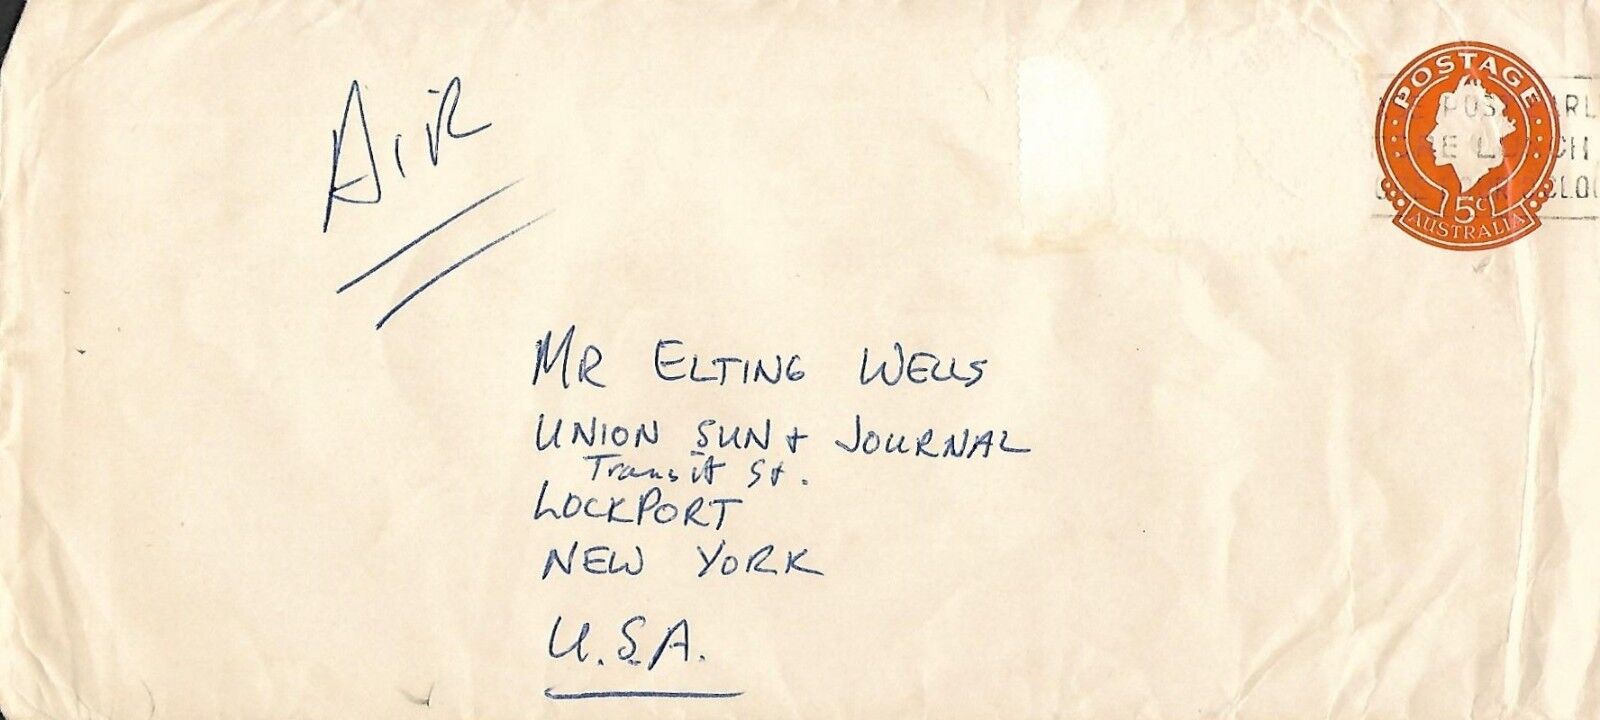 Air
POSTAGE
5c
AUSTRALIA
MR ELTING WELLS
UNION SUN + JOURNAL
Transit St.
LOCKPORT
NEW YORK
U.S.A.